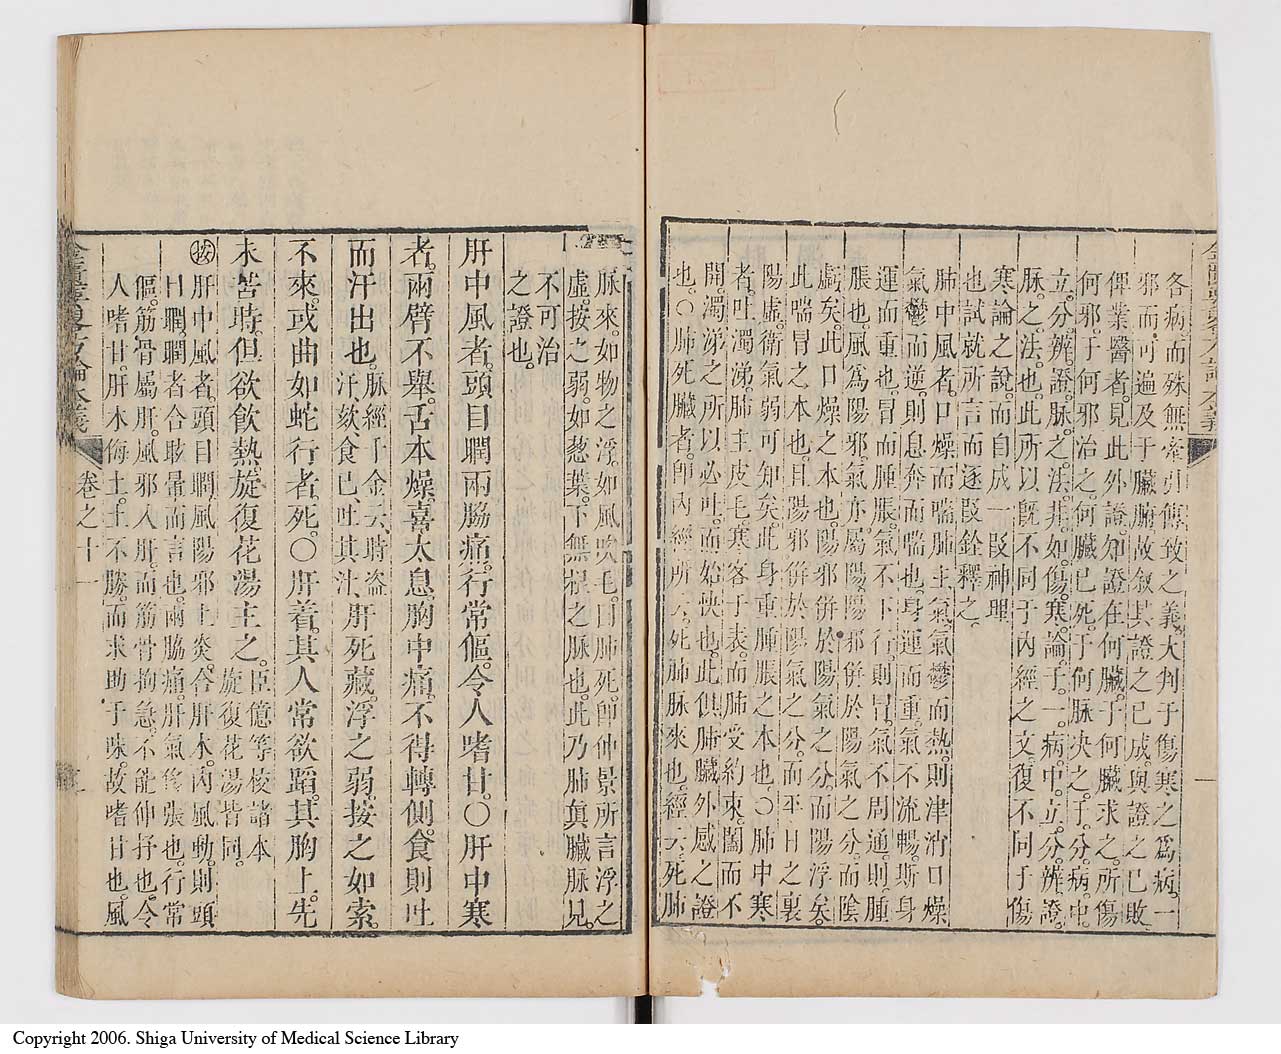 各病而殊無牽引傳致之義大判于傷寒之爲病一
邪而可遍及于臟腑故敘其證之已成與證之已敗
俾業醫者見此外證知證在何臟于何臟求之所傷
何邪于何邪治之何臟已死于何脉决之于分病中
立分辨證脉之法非如傷寒論于一病中立分辨證
脉之法也此所以旣不同于內經之文復不同于傷
寒論之說而自成一段神理
也試就所言而逐段銓釋之
肺中風者口燥而喘肺主氣氣鬱而熱則津消口燥
氣鬱而逆則息奔而喘也身運而重氣不流暢斯身
運而重也冒而腫脹氣不下行則冒氣不周通則腫
脹也風爲陽邪氣亦屬陽陽邪併於陽氣之分而陰
虛矣此口燥之本也陽邪併於陽氣之分而陽浮矣
此喘冒之本也且陽邪併於陽氣之分而平日之裏
陽虛衛氣弱可知矣此身重腫脹之本也〇肺中寒
者吐濁涕肺主皮毛寒客于表而肺受約束闔而不
開濁涕之所以必吐而始快也此俱肺臟外感之證
也〇肺死臟者卽內經所云死肺脉來也經云死肺
脉來如物之浮如風吹毛曰肺死卽仲景所言浮之
虛按之弱如葱葉下無根之脉也此乃肺眞臟脉見
不可治
之證也
肝中風者頭目瞤兩脇痛行常傴令人嗜甘〇肝中寒
者兩臂不舉舌本燥喜太息胸中痛不得轉側食則吐
而汗出也脉經千金云時盜汗欬食已吐其汁肝死藏浮之弱按之如索
不來或曲如蛇行者死〇肝着其人常欲蹈其胸上先
未苦時但欲飲熱旋復花湯主之臣億等校諸本旋復花湯皆同
按肝中風者頭目瞤風陽邪上炎合肝木內風動則頭
目瞤瞤者合眩暈而言也兩脇痛肝氣脹也行常
傴筋骨屬肝風邪入肝而筋骨拘急不能伸抒也令
人嗜甘肝木侮土土不勝而求助于味故嗜甘也風
金匱要畧方論本義
卷之十一
Copyright 2006. Shiga University of Medical Science Library